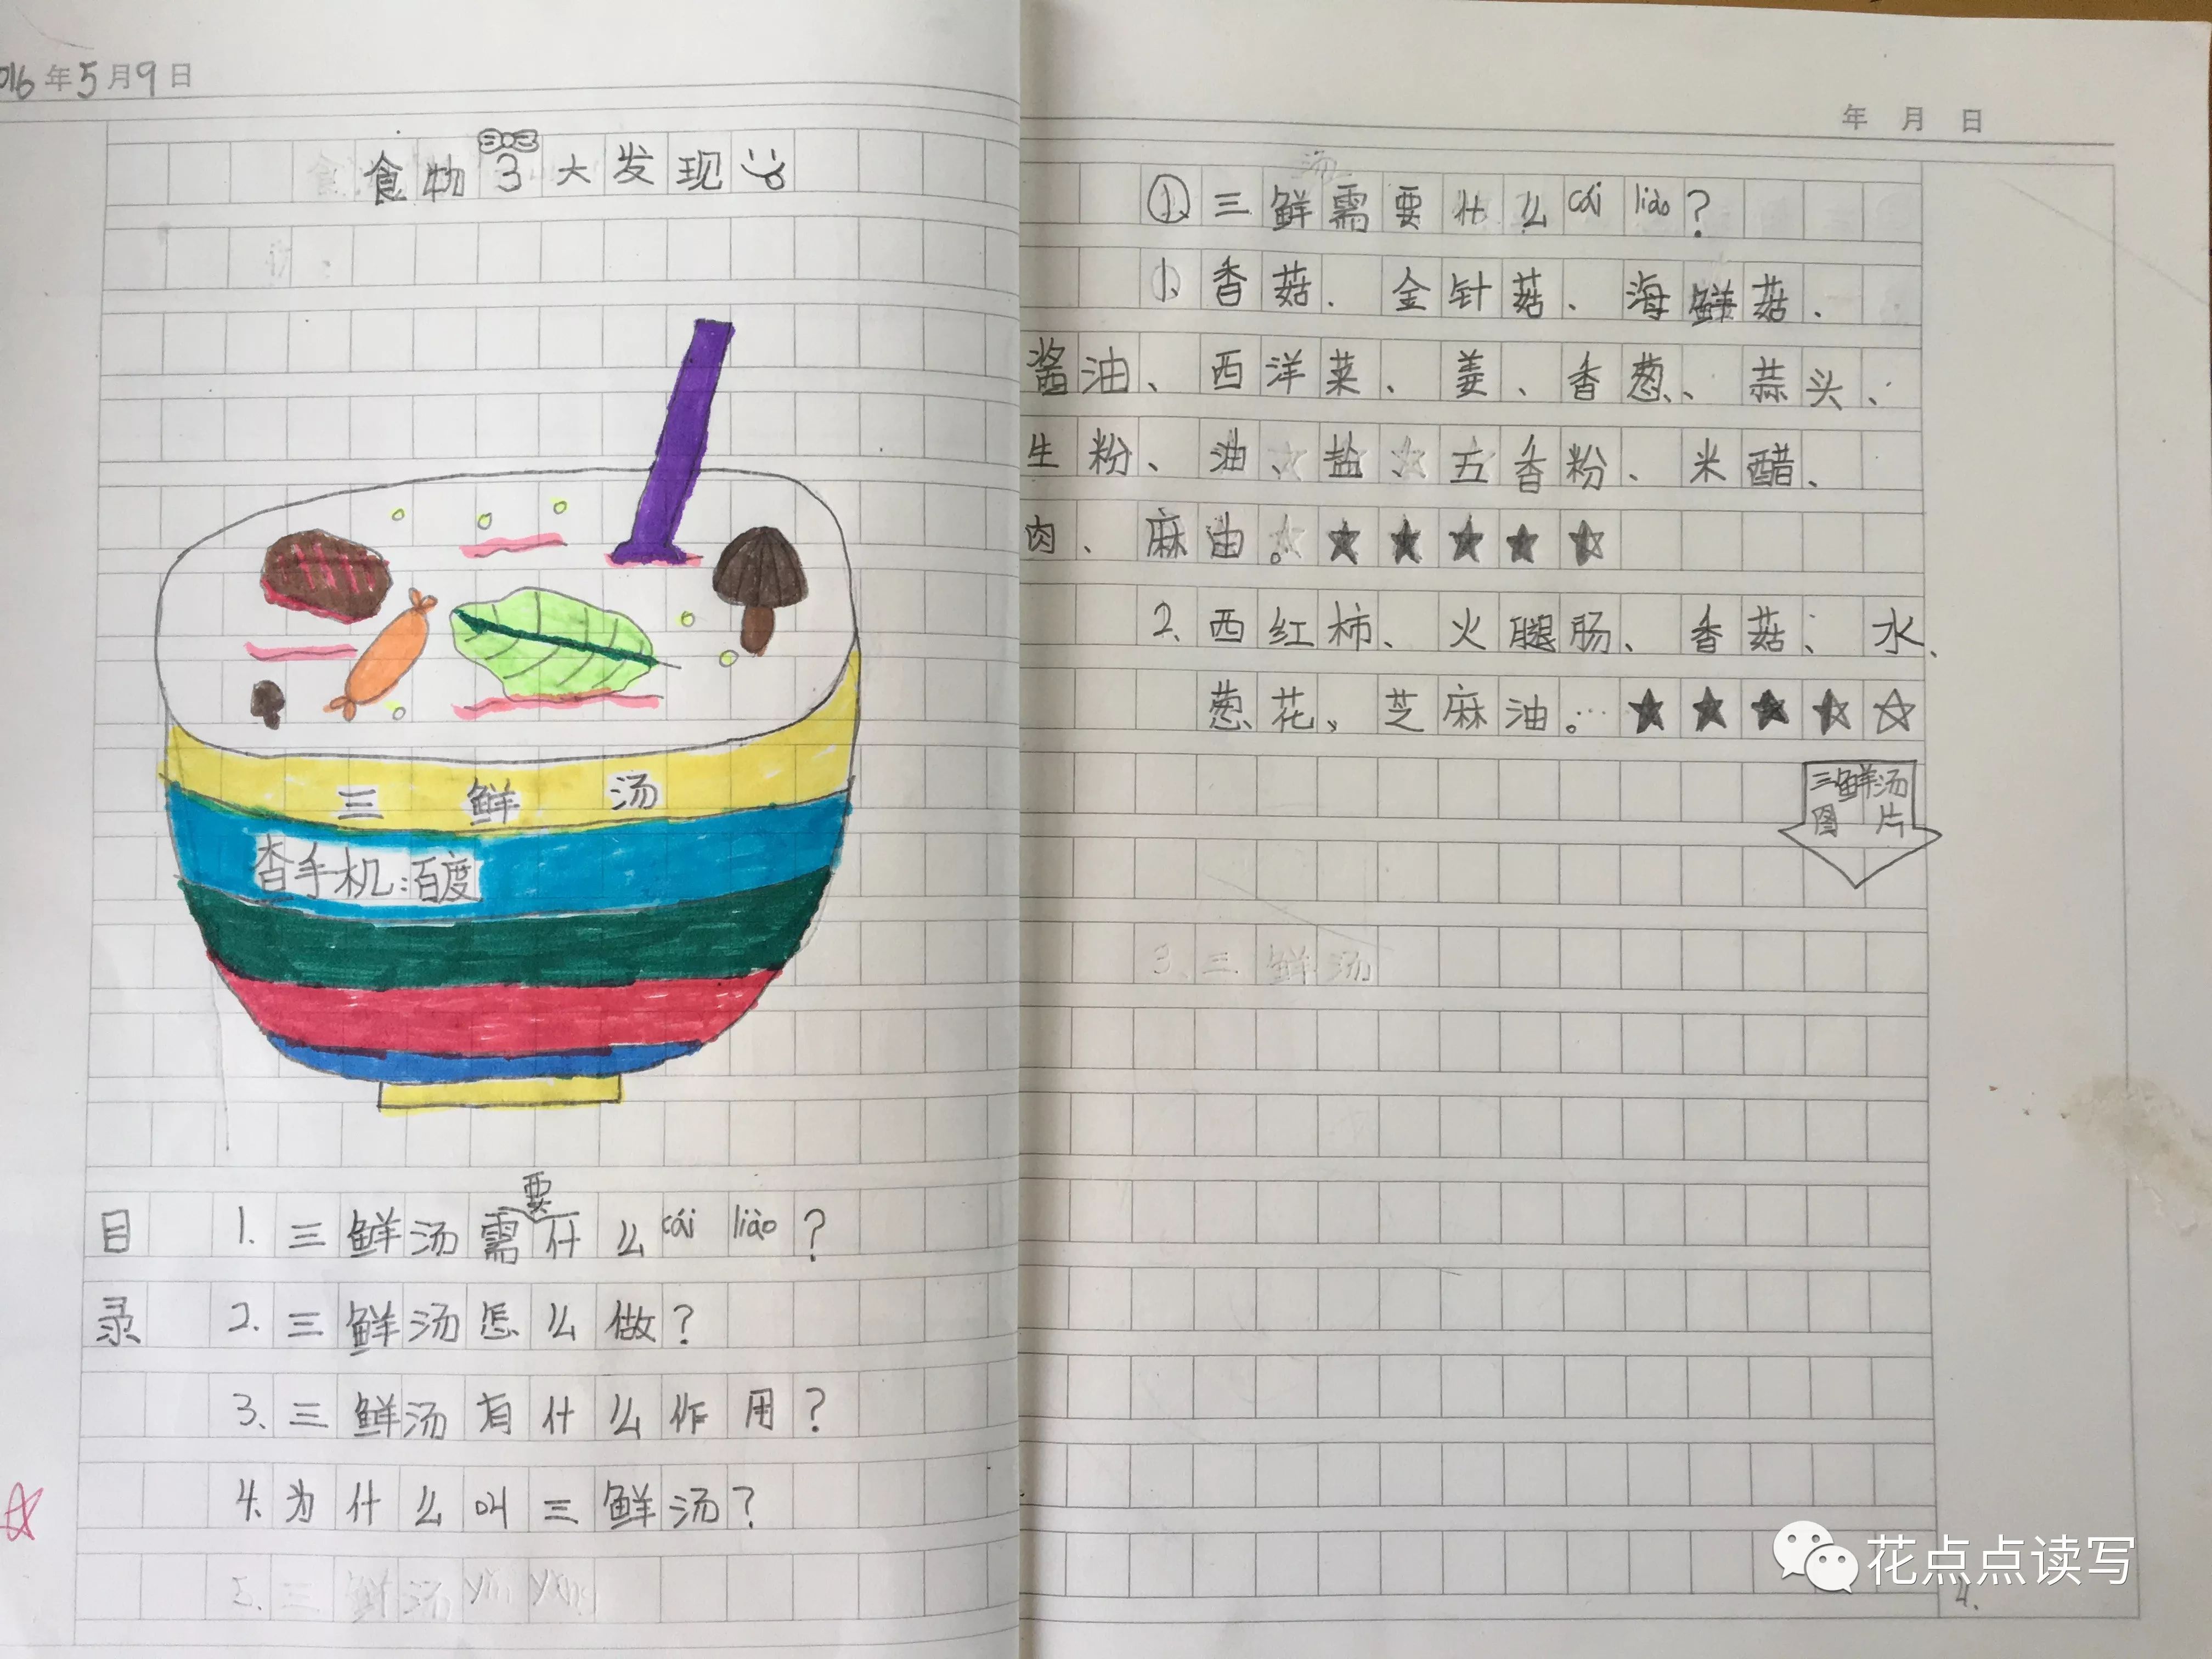 016年5月9日
食物3大发现
三鲜汤
查手机:百度
目 1. 三鲜汤需要什么cái liào?
录 2. 三鲜汤怎么做?
3. 三鲜汤有什么作用?
4. 为什么叫三鲜汤?
年 月 日
① 三鲜汤需要什么cái liào?
1、香菇、金针菇、海鲜菇、
酱油、西洋菜、姜、香葱、蒜头、
生粉、油、盐、五香粉、米醋、
肉、麻油。★★★★⯪
2、西红柿、火腿肠、香菇、水、
葱花、芝麻油。★★★⯪☆
三鲜汤
图片
3、三鲜汤
花点点读写
4.